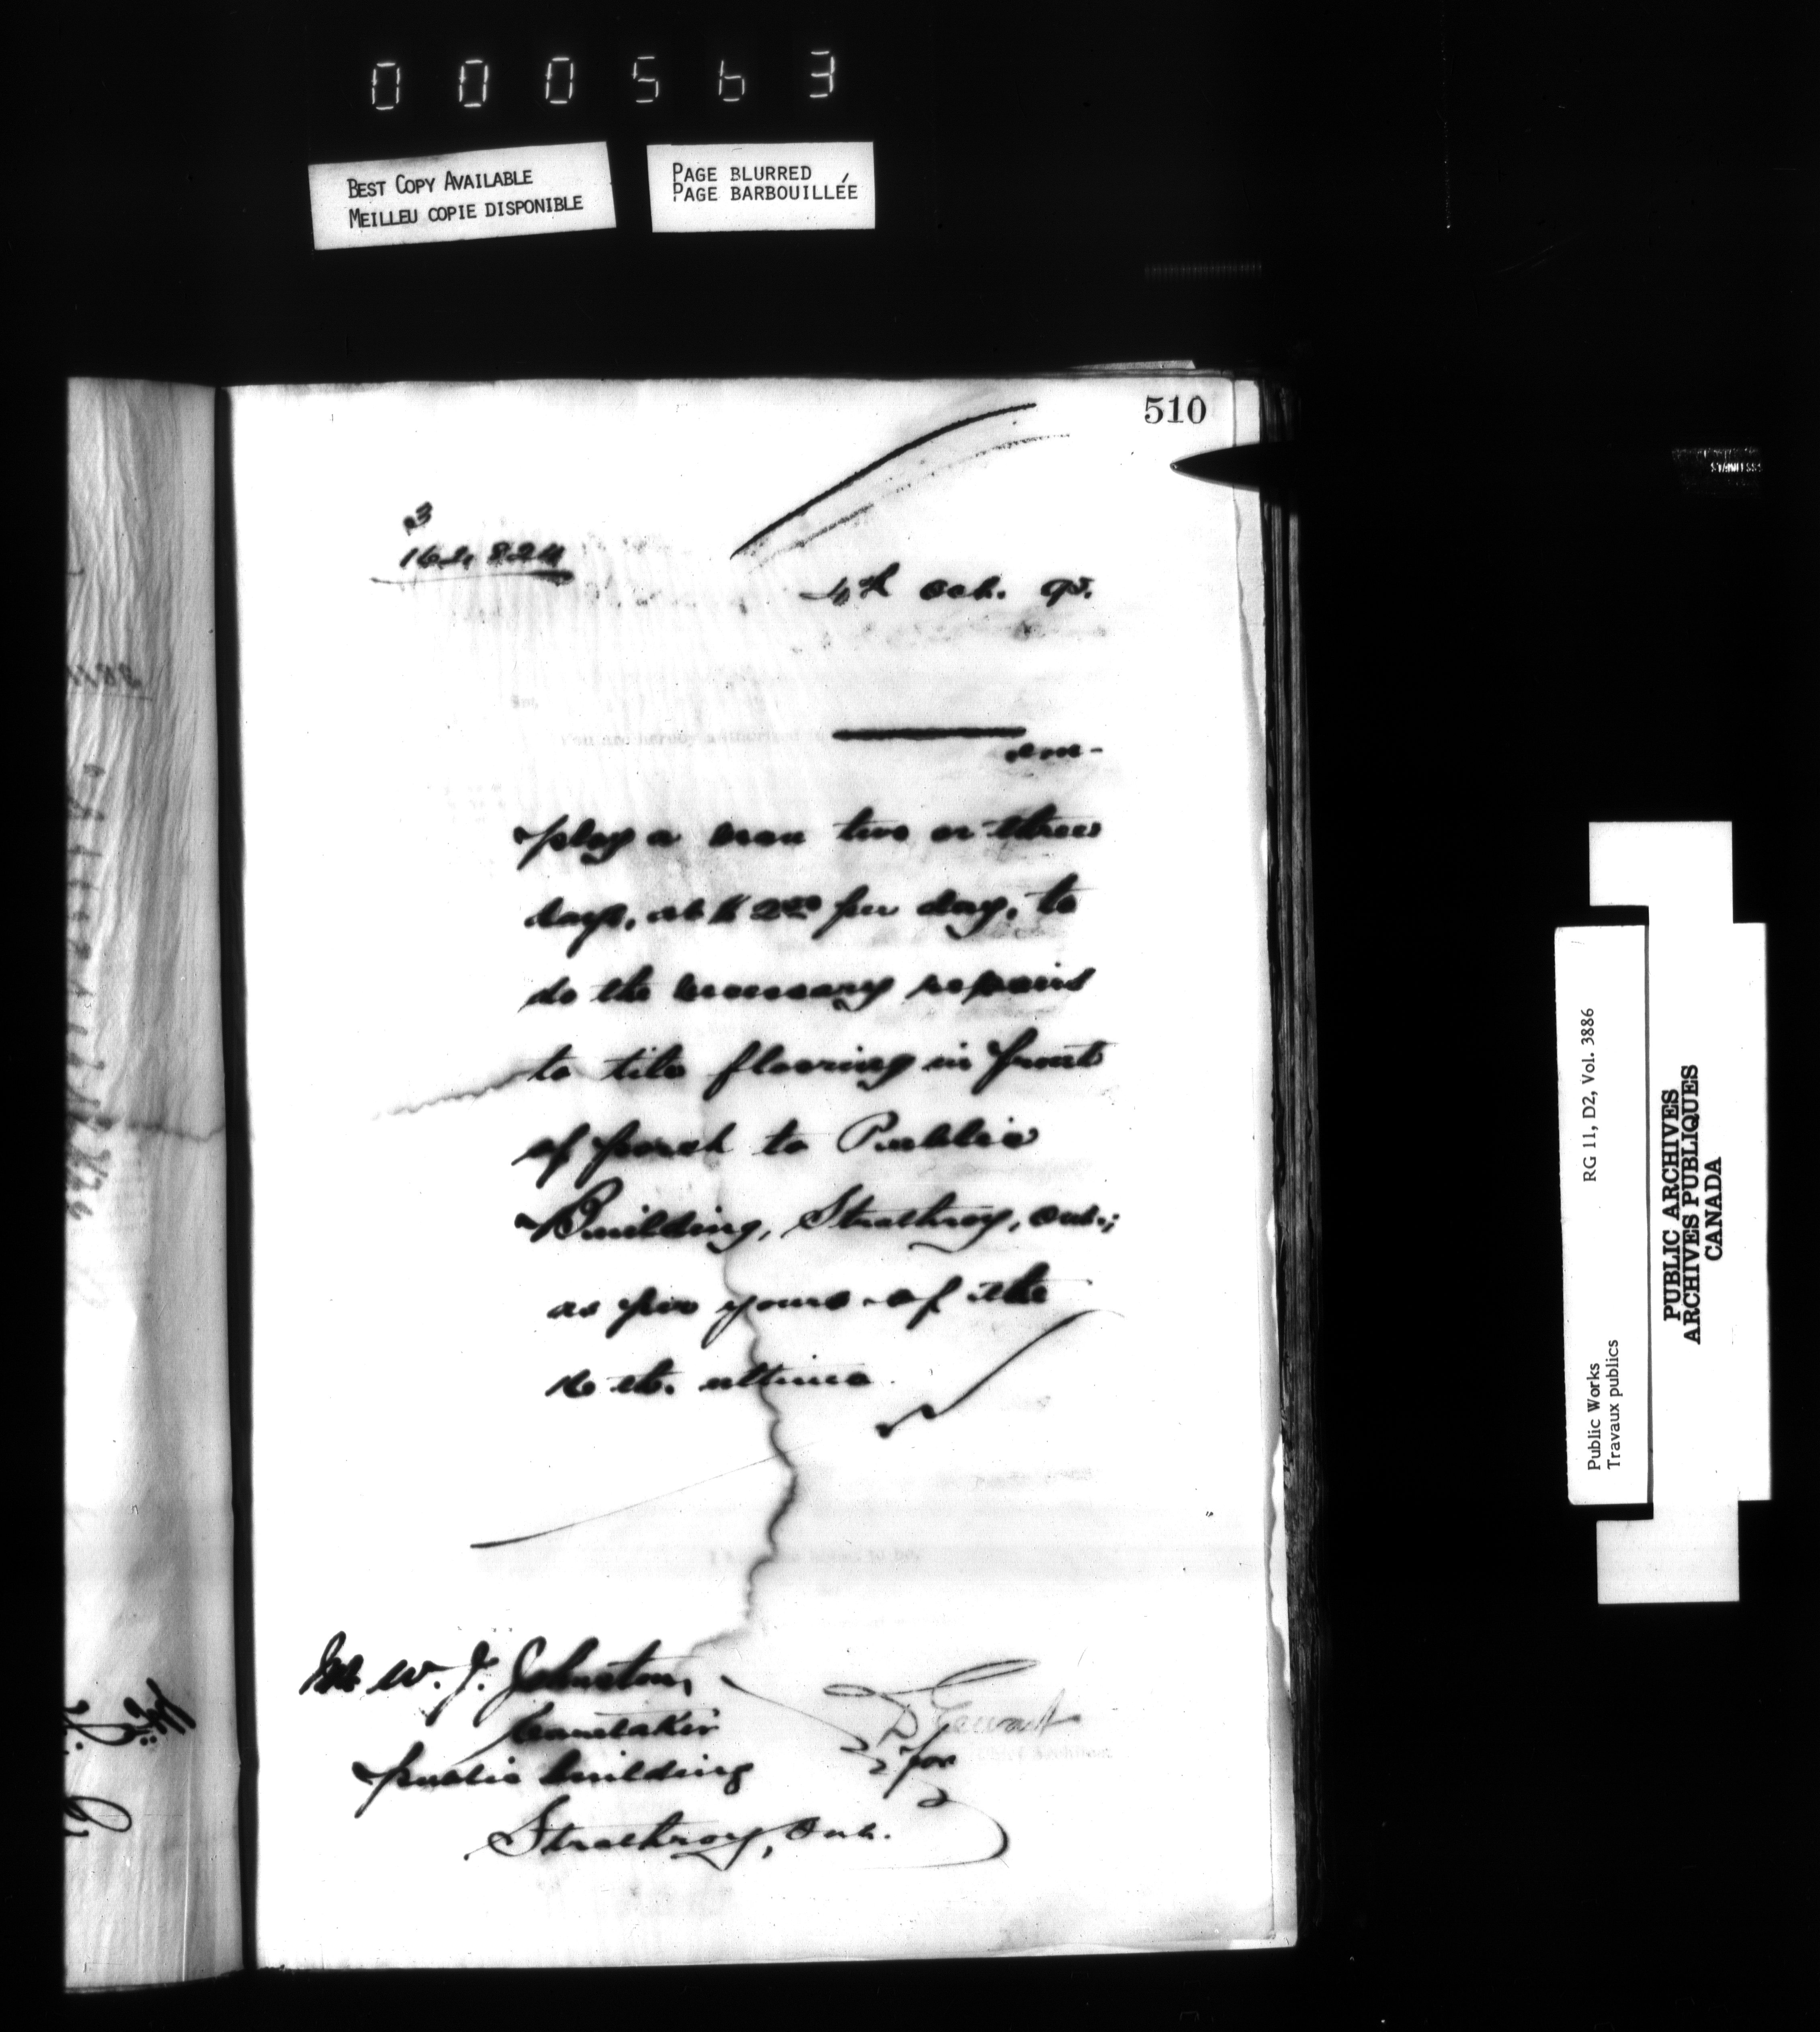 000563
BEST COPY AVAILABLE
MEILLEU COPIE DISPONIBLE
PAGE BLURRED
PAGE BARBOUILLÉE
510
3
162,824
4th Oct. 95.
Sir,
You are hereby authorized to
em-
ploy a man two or three
days, at $2.00 per day, to
do the necessary repairs
to tile flooring in front
of porch to Public
Building, Strathroy, Ont.;
as per yours of the
16th. ultimo.
Mr. W. J. Johnston,
Caretaker
public building
Strathroy, Ont.
D Ewart
for
Chief Architect
STAINLESS
Public Works
Travaux publics
RG 11, D2, Vol. 3886
PUBLIC ARCHIVES
ARCHIVES PUBLIQUES
CANADA